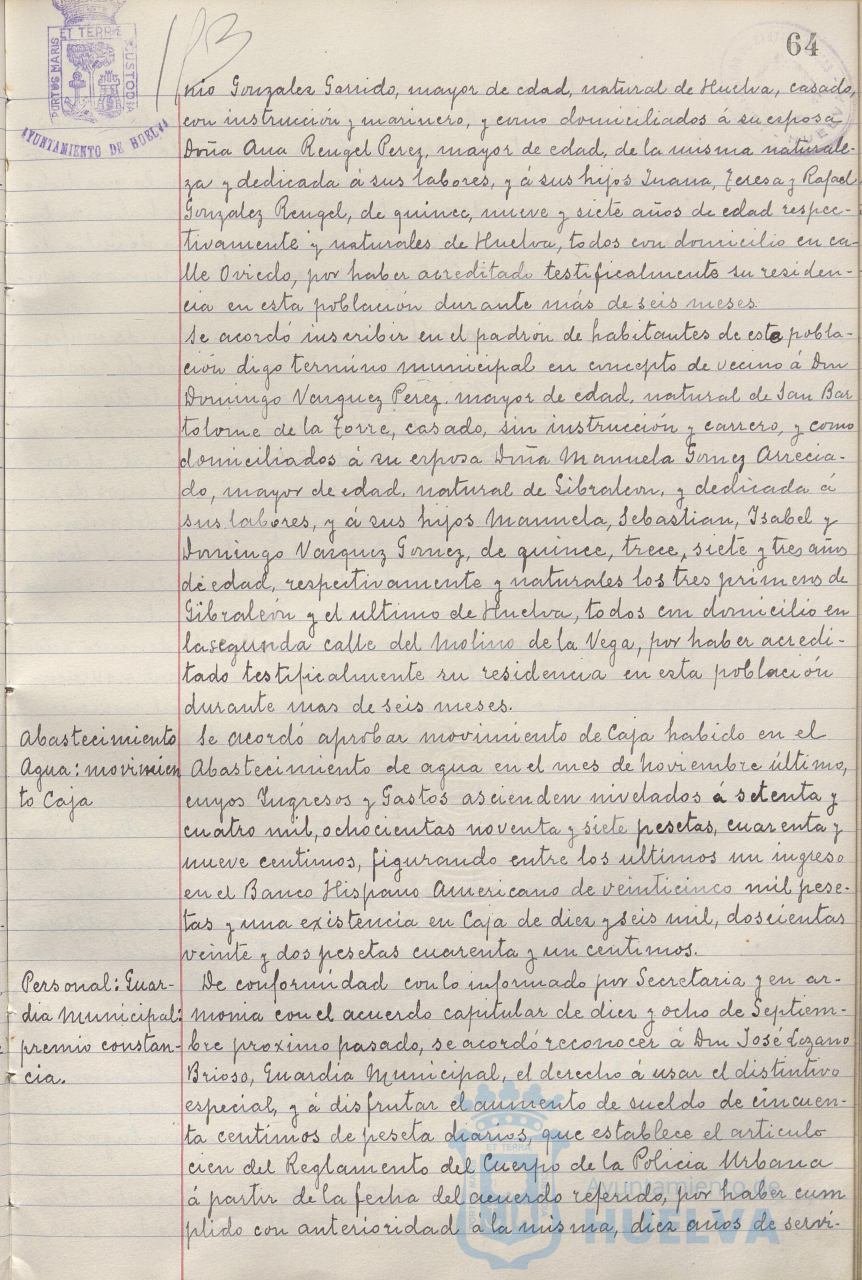 64
PORTUS MARIS ET TERRE CUSTODIA
AYUNTAMIENTO DE HUELVA
nio Gonzalez Garrido, mayor de edad, natural de Huelva, casado,
con instrucción y marinero, y como domiciliados á su esposa
Doña Ana Rengel Perez, mayor de edad, de la misma naturale-
za y dedicada á sus labores, y á sus hijos Juana, Teresa y Rafael
Gonzalez Rengel, de quince, nueve y siete años de edad respec-
tivamente y naturales de Huelva, todos con domicilio en ca-
lle Oviedo, por haber acreditado testificalmente su residen-
cia en esta población durante más de seis meses.
Se acordó inscribir en el padrón de habitantes de este pobla-
ción digo termino municipal en concepto de vecino á Don
Domingo Vazquez Perez, mayor de edad, natural de San Bar
tolome de la Torre, casado, sin instrucción y carrero, y como
domiciliados á su esposa Doña Manuela Gomez Arrecia-
do, mayor de edad, natural de Gibraleon, y dedicada á
sus labores, y á sus hijos Manuela, Sebastian, Isabel y
Domingo Vazquez Gomez, de quince, trece, siete y tres años
de edad, respectivamente y naturales los tres primeros de
Gibraleón y el ultimo de Huelva, todos con domicilio en
la segunda calle del Molino de la Vega, por haber acredi-
tado testificalmente su residencia en esta población
durante mas de seis meses.
Abastecimiento
Agua: movimien
to Caja
Se acordó aprobar movimiento de Caja habido en el
Abastecimiento de agua en el mes de Noviembre último,
cuyos Ingresos y Gastos ascienden nivelados á setenta y
cuatro mil, ochocientas noventa y siete pesetas, cuarenta y
nueve centimos, figurando entre los ultimos un ingreso
en el Banco Hispano Americano de veinticinco mil pese-
tas y una existencia en Caja de diez y seis mil, doscientas
veinte y dos pesetas cuarenta y un centimos.
Personal: Guar-
dia Municipal:
premio constan-
cia.
De conformidad con lo informado por Secretaria y en ar-
monia con el acuerdo capitular de diez y ocho de Septiem-
bre proximo pasado, se acordó reconocer á Don José Lozano
Brioso, Guardia Municipal, el derecho á usar el distintivo
especial, y á disfrutar el aumento de sueldo de cincuen-
ta centimos de peseta diarios, que establece el articulo
cien del Reglamento del Cuerpo de la Policia Urbana
á partir de la fecha del acuerdo referido, por haber cum
plido con anterioridad á la misma, diez años de servi-
Ayuntamiento de
HUELVA